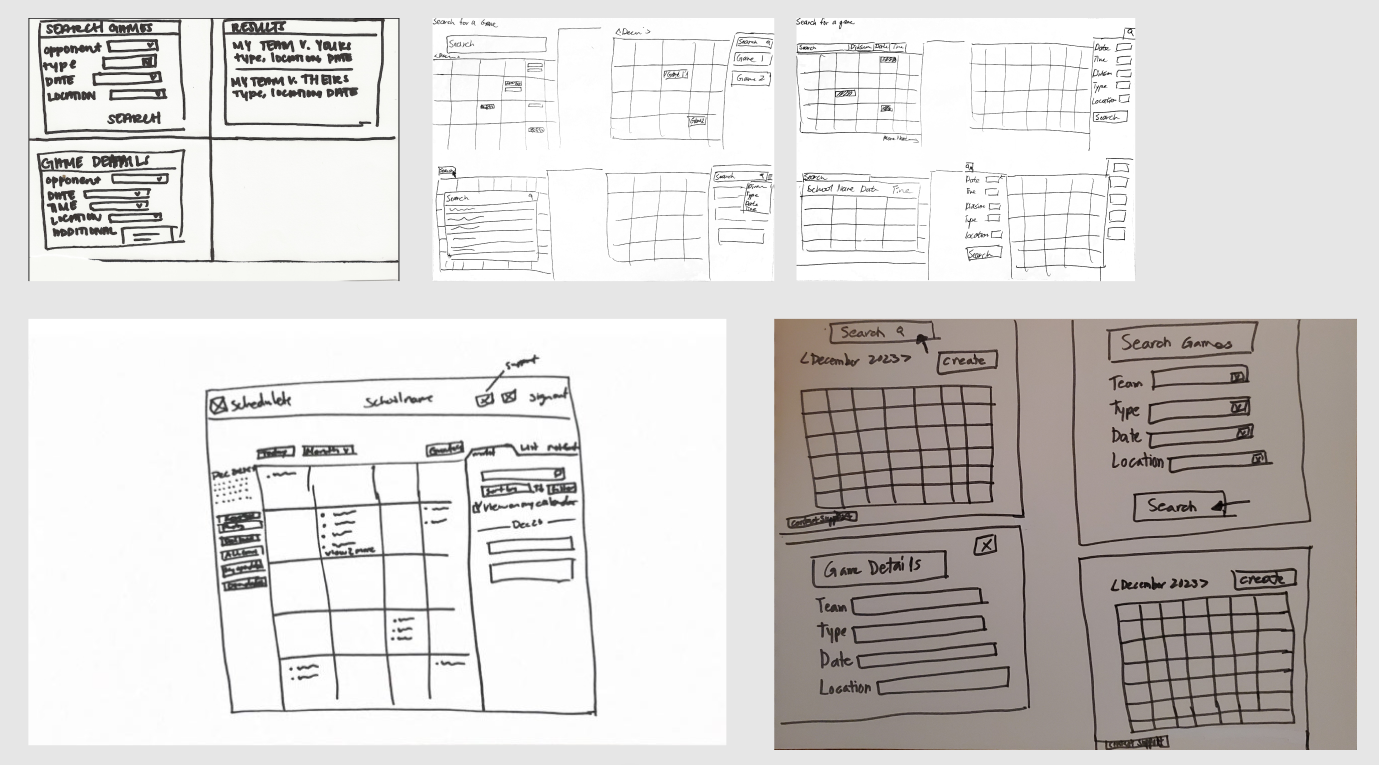 SEARCH GAMES
opponent
type
DATE
LOCATION
SEARCH
RESULTS
MY TEAM V. YOURS
type, location, DATE
MY TEAM V. THEIRS
Type, location, DATE
GAME DETAILS
opponent
DATE
TIME
LOCATION
ADDITIONAL
Search for a Game
Search
Search
Game 1
Game 2
Game 1
Search
Search
Type
Date
Search for a game
Search Division Date Time
Date
Time
Division
Type
Location
Search
Search
School Name Date Time
Date
Time
Division
Type
Location
Search
support
Schedulete
School name
sign out
Today
Month
List
View on my calendar
Dec 20
view 2 more
Search
<December 2023>
create
contact support
Search Games
Team
Type
Date
Location
Search
Game Details
X
Team
Type
Date
Location
<December 2023>
create
contact support